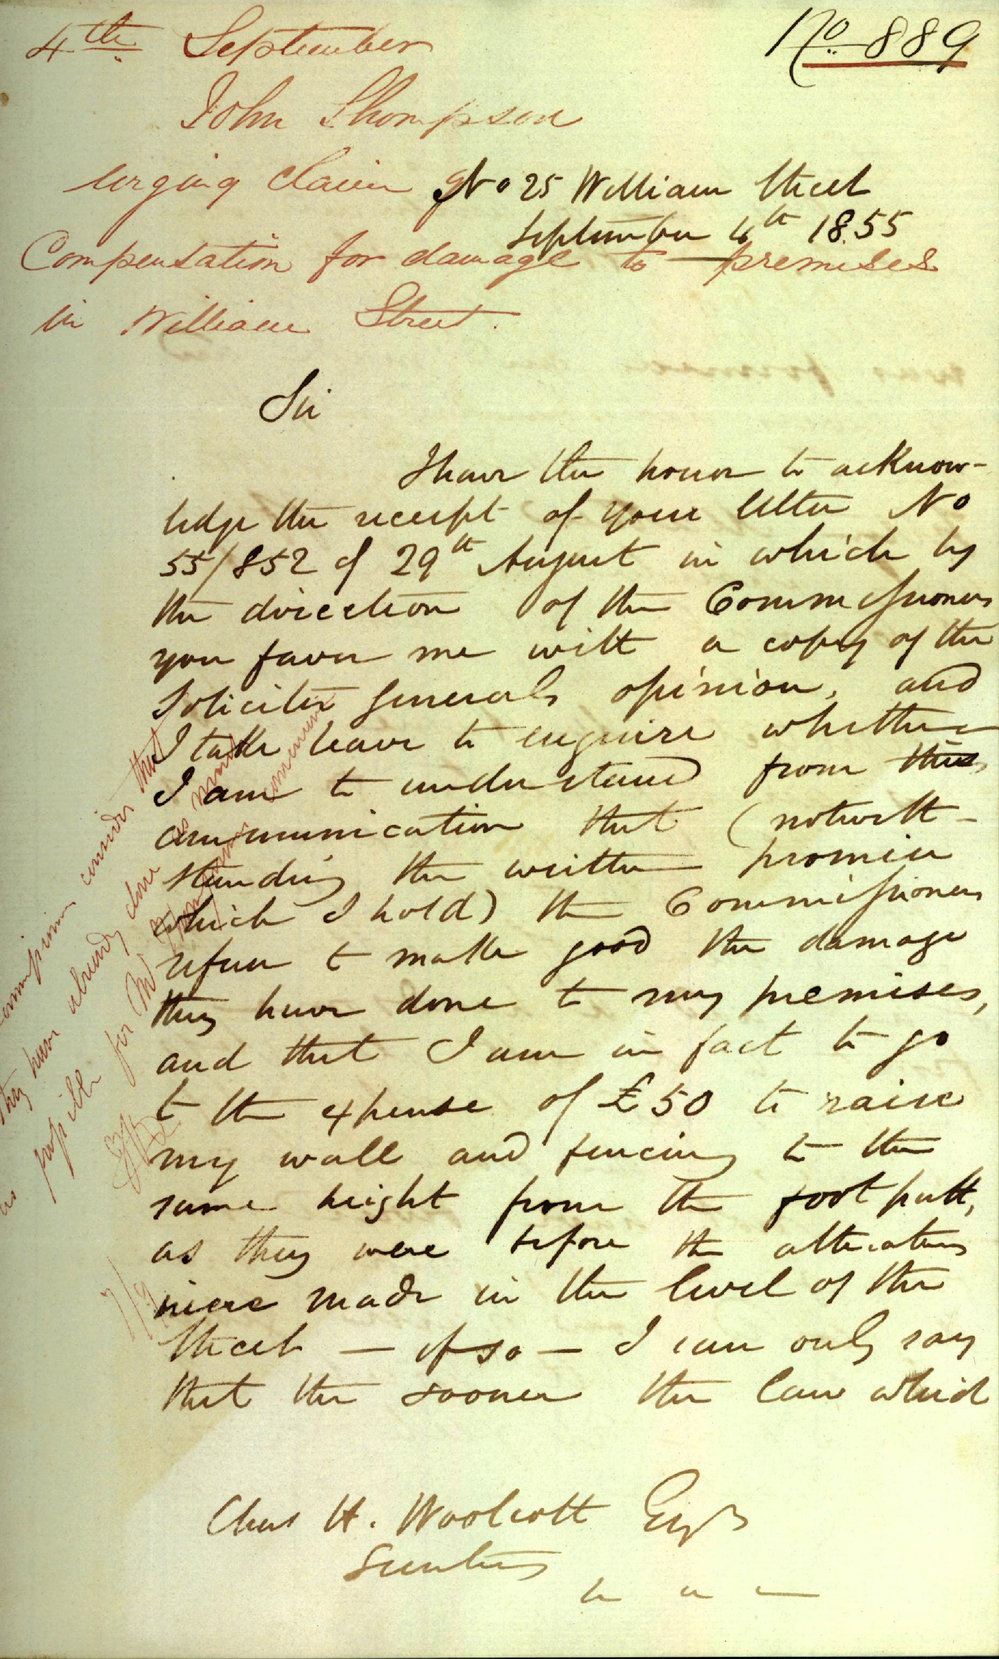 No 889
4th September
John Thompson
urging claim of
No 25 William Street
September 4th 1855
Compensation for damage to premises
in William Street.
Sir
I have the honor to acknow-
ledge the receipt of your letter No
55/852 of 29th August in which by
the direction of the Commissioners
you favor me with a copy of the
Solicitor Generals opinion, and
I take leave to enquire whether
I am to understand from this
communication that (notwith-
standing the written promise
which I hold) the Commissioners
refuse to make good the damage
they have done to my premises,
and that I am in fact to go
to the expense of £50 to raise
my wall and fencing to the
same height from the footpath,
as they were before the alterations
were made in the level of the
Street — if so — I can only say
that the sooner the law which
Chas H. Woolcott Esqr
Secretary
Commissioners consider that
they have already done as much
as possible for Mr Thompson
7/9